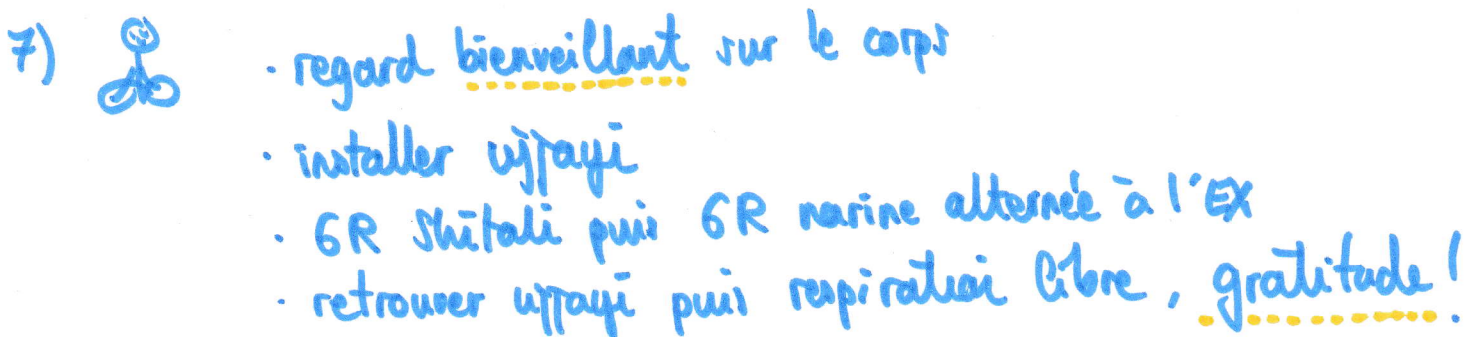 7)
· regard bienveillant sur le corps
· installer ujjayi
· 6R Shitali puis 6R narine alternée à l'EX
· retrouver ujjayi puis respiration libre, gratitude!